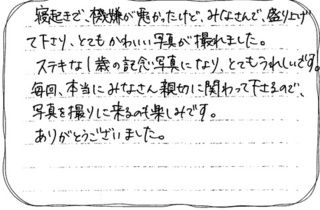 寝起きで、機嫌が悪かったけど、みなさんで、盛り上げ
て下さり、とてもかわいい写真が撮れました。
ステキな1歳の記念写真になり、とてもうれしいです。
毎回、本当にみなさん親切に関わって下さるので、
写真を撮りに来るのも楽しみです。
ありがとうございました。